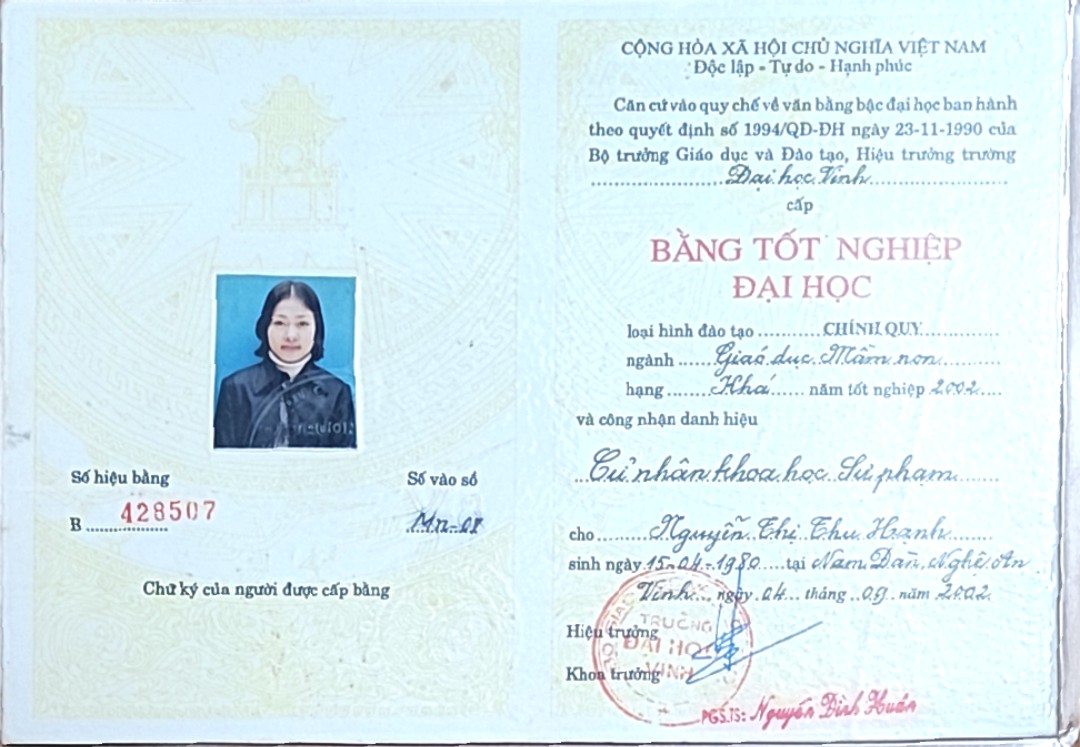 Số hiệu bằng
B 428507
Số vào sổ
Mn-01
Chữ ký của người được cấp bằng
CỘNG HÒA XÃ HỘI CHỦ NGHĨA VIỆT NAM
Độc lập - Tự do - Hạnh phúc
Căn cứ vào quy chế về văn bằng bậc đại học ban hành
theo quyết định số 1994/QD-ĐH ngày 23-11-1990 của
Bộ trưởng Giáo dục và Đào tạo, Hiệu trưởng trường
Đại học Vinh
cấp
BẰNG TỐT NGHIỆP
ĐẠI HỌC
loại hình đào tạo CHÍNH QUY
ngành Giáo dục Mầm non
hạng Khá năm tốt nghiệp 2002
và công nhận danh hiệu
Cử nhân khoa học Sư phạm
cho Nguyễn Thị Thu Hạnh
sinh ngày 15-04-1980 tại Nam Đàn, Nghệ An
Vinh ngày 04 tháng 09 năm 2002
Hiệu trưởng
TRƯỜNG
ĐẠI HỌC
VINH
Khoa trưởng
PGS.TS: Nguyễn Đình Huân